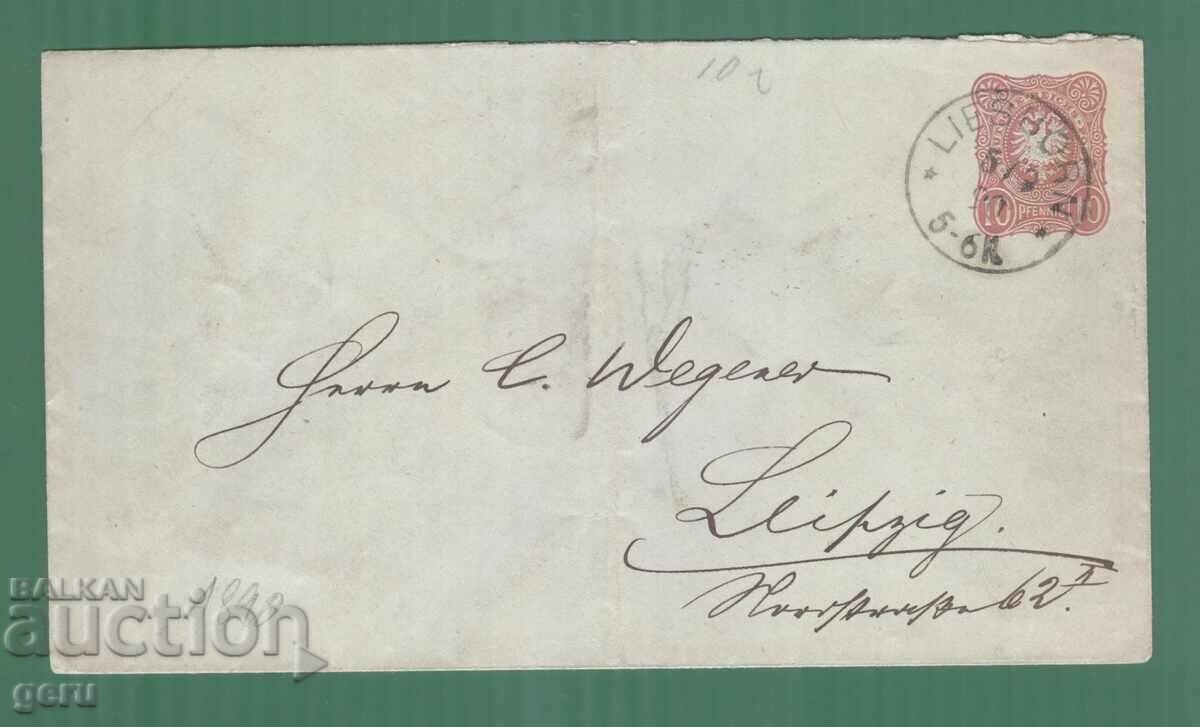 10
LIEBSCHÜTZ
5-6N
10 PFENNIG 10
Herrn C. Wegener
Leipzig.
Nordstraße 62 II.
BALKAN
auction
geru